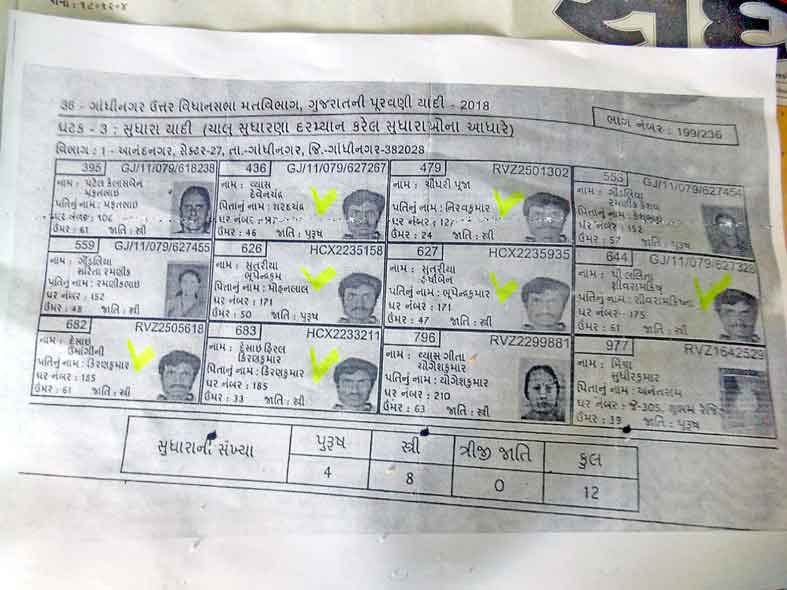 ૧૮૦૧૨૦૪
36 - ગાંધીનગર ઉત્તર વિધાનસભા મતવિભાગ, ગુજરાતની પૂરવણી યાદી - 2018
ઘટક - 3 : સુધારા યાદી (ચાલુ સુધારણા દરમ્યાન કરેલ સુધારાઓના આધારે)
ભાગ નંબર : 199/236
વિભાગ : 1 - આનંદનગર, સેક્ટર-27, તા.-ગાંધીનગર, જિ.-ગાંધીનગર-382028
395 GJ/11/079/618238
નામ : પટેલ કૈલાસબેન
મફતભાઇ
પતિનું નામ : મફતભાઇ
ઘર નંબર : 106
ઉંમર : 61 જાતિ : સ્ત્રી
436 GJ/11/079/627267
નામ : વ્યાસ
દેવેનચંદ્ર
પિતાનું નામ : શરદચંદ્ર
ઘર નંબર :
ઉંમર : 46 જાતિ : પુરૂષ
479 RVZ2501302
નામ : ચૌધરી પૂજા
પતિનું નામ : નિરવકુમાર
ઘર નંબર : 127
ઉંમર : 24 જાતિ : સ્ત્રી
555 GJ/11/079/627454
નામ : ગોંડલિયા
રમણીક
પિતાનું નામ :
ઘર નંબર : 152
ઉંમર : 57 જાતિ : પુરૂષ
559 GJ/11/079/627455
નામ : ગોંડલિયા
સરિતા રમણીક
પતિનું નામ : રમણીકભાઇ
ઘર નંબર : 152
ઉંમર : 48 જાતિ : સ્ત્રી
626 HCX2235158
નામ : સુતરીયા
ભૂપેન્દ્રકુમ
પિતાનું નામ : મોહનલાલ
ઘર નંબર : 171
ઉંમર : 50 જાતિ : પુરૂષ
627 HCX2235935
નામ : સુતરીયા
પતિનું નામ : ભૂપેન્દ્રકુમાર
ઘર નંબર : 171
ઉંમર : 47 જાતિ : સ્ત્રી
644 GJ/11/079/627328
નામ : પી લલિતા
પતિનું નામ :
ઘર નંબર : 175
ઉંમર : 61 જાતિ : સ્ત્રી
682 RVZ2505618
નામ : દેસાઇ
ઉમાંગીની
પતિનું નામ : કિરણકુમાર
ઘર નંબર : 185
ઉંમર : 61 જાતિ : સ્ત્રી
683 HCX2233211
નામ : દેસાઇ હિરલ
કિરણકુમાર
પિતાનું નામ : કિરણકુમાર
ઘર નંબર : 185
ઉંમર : 33 જાતિ : સ્ત્રી
796 RVZ2299881
નામ : વ્યાસ ગીતા
યોગેશકુમાર
પતિનું નામ : યોગેશકુમાર
ઘર નંબર : 210
ઉંમર : 63 જાતિ : સ્ત્રી
977 RVZ1642529
નામ : મિશ્રા
સુધીરકુમાર
પિતાનું નામ : અનંતરાય
ઘર નંબર : જે-305,
ઉંમર : 39 જાતિ : પુરૂષ
સુધારાની સંખ્યા પુરૂષ સ્ત્રી ત્રીજી જાતિ કુલ
4 8 0 12